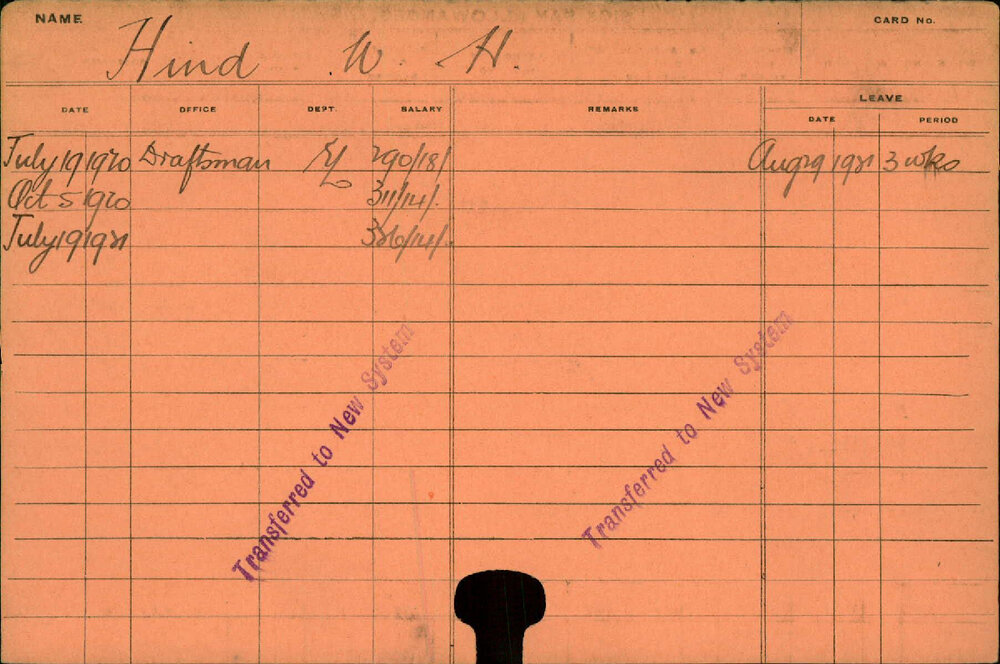 NAME
CARD No.
Hind W. H.
DATE OFFICE DEPT. SALARY REMARKS LEAVE
DATE PERIOD
July 19 1920 Draftsman 290/18/ Aug 29 1921 3 wks
Oct 5 1920 311/14/.
July 19 1921 326/14/.
Transferred to New System
Transferred to New System